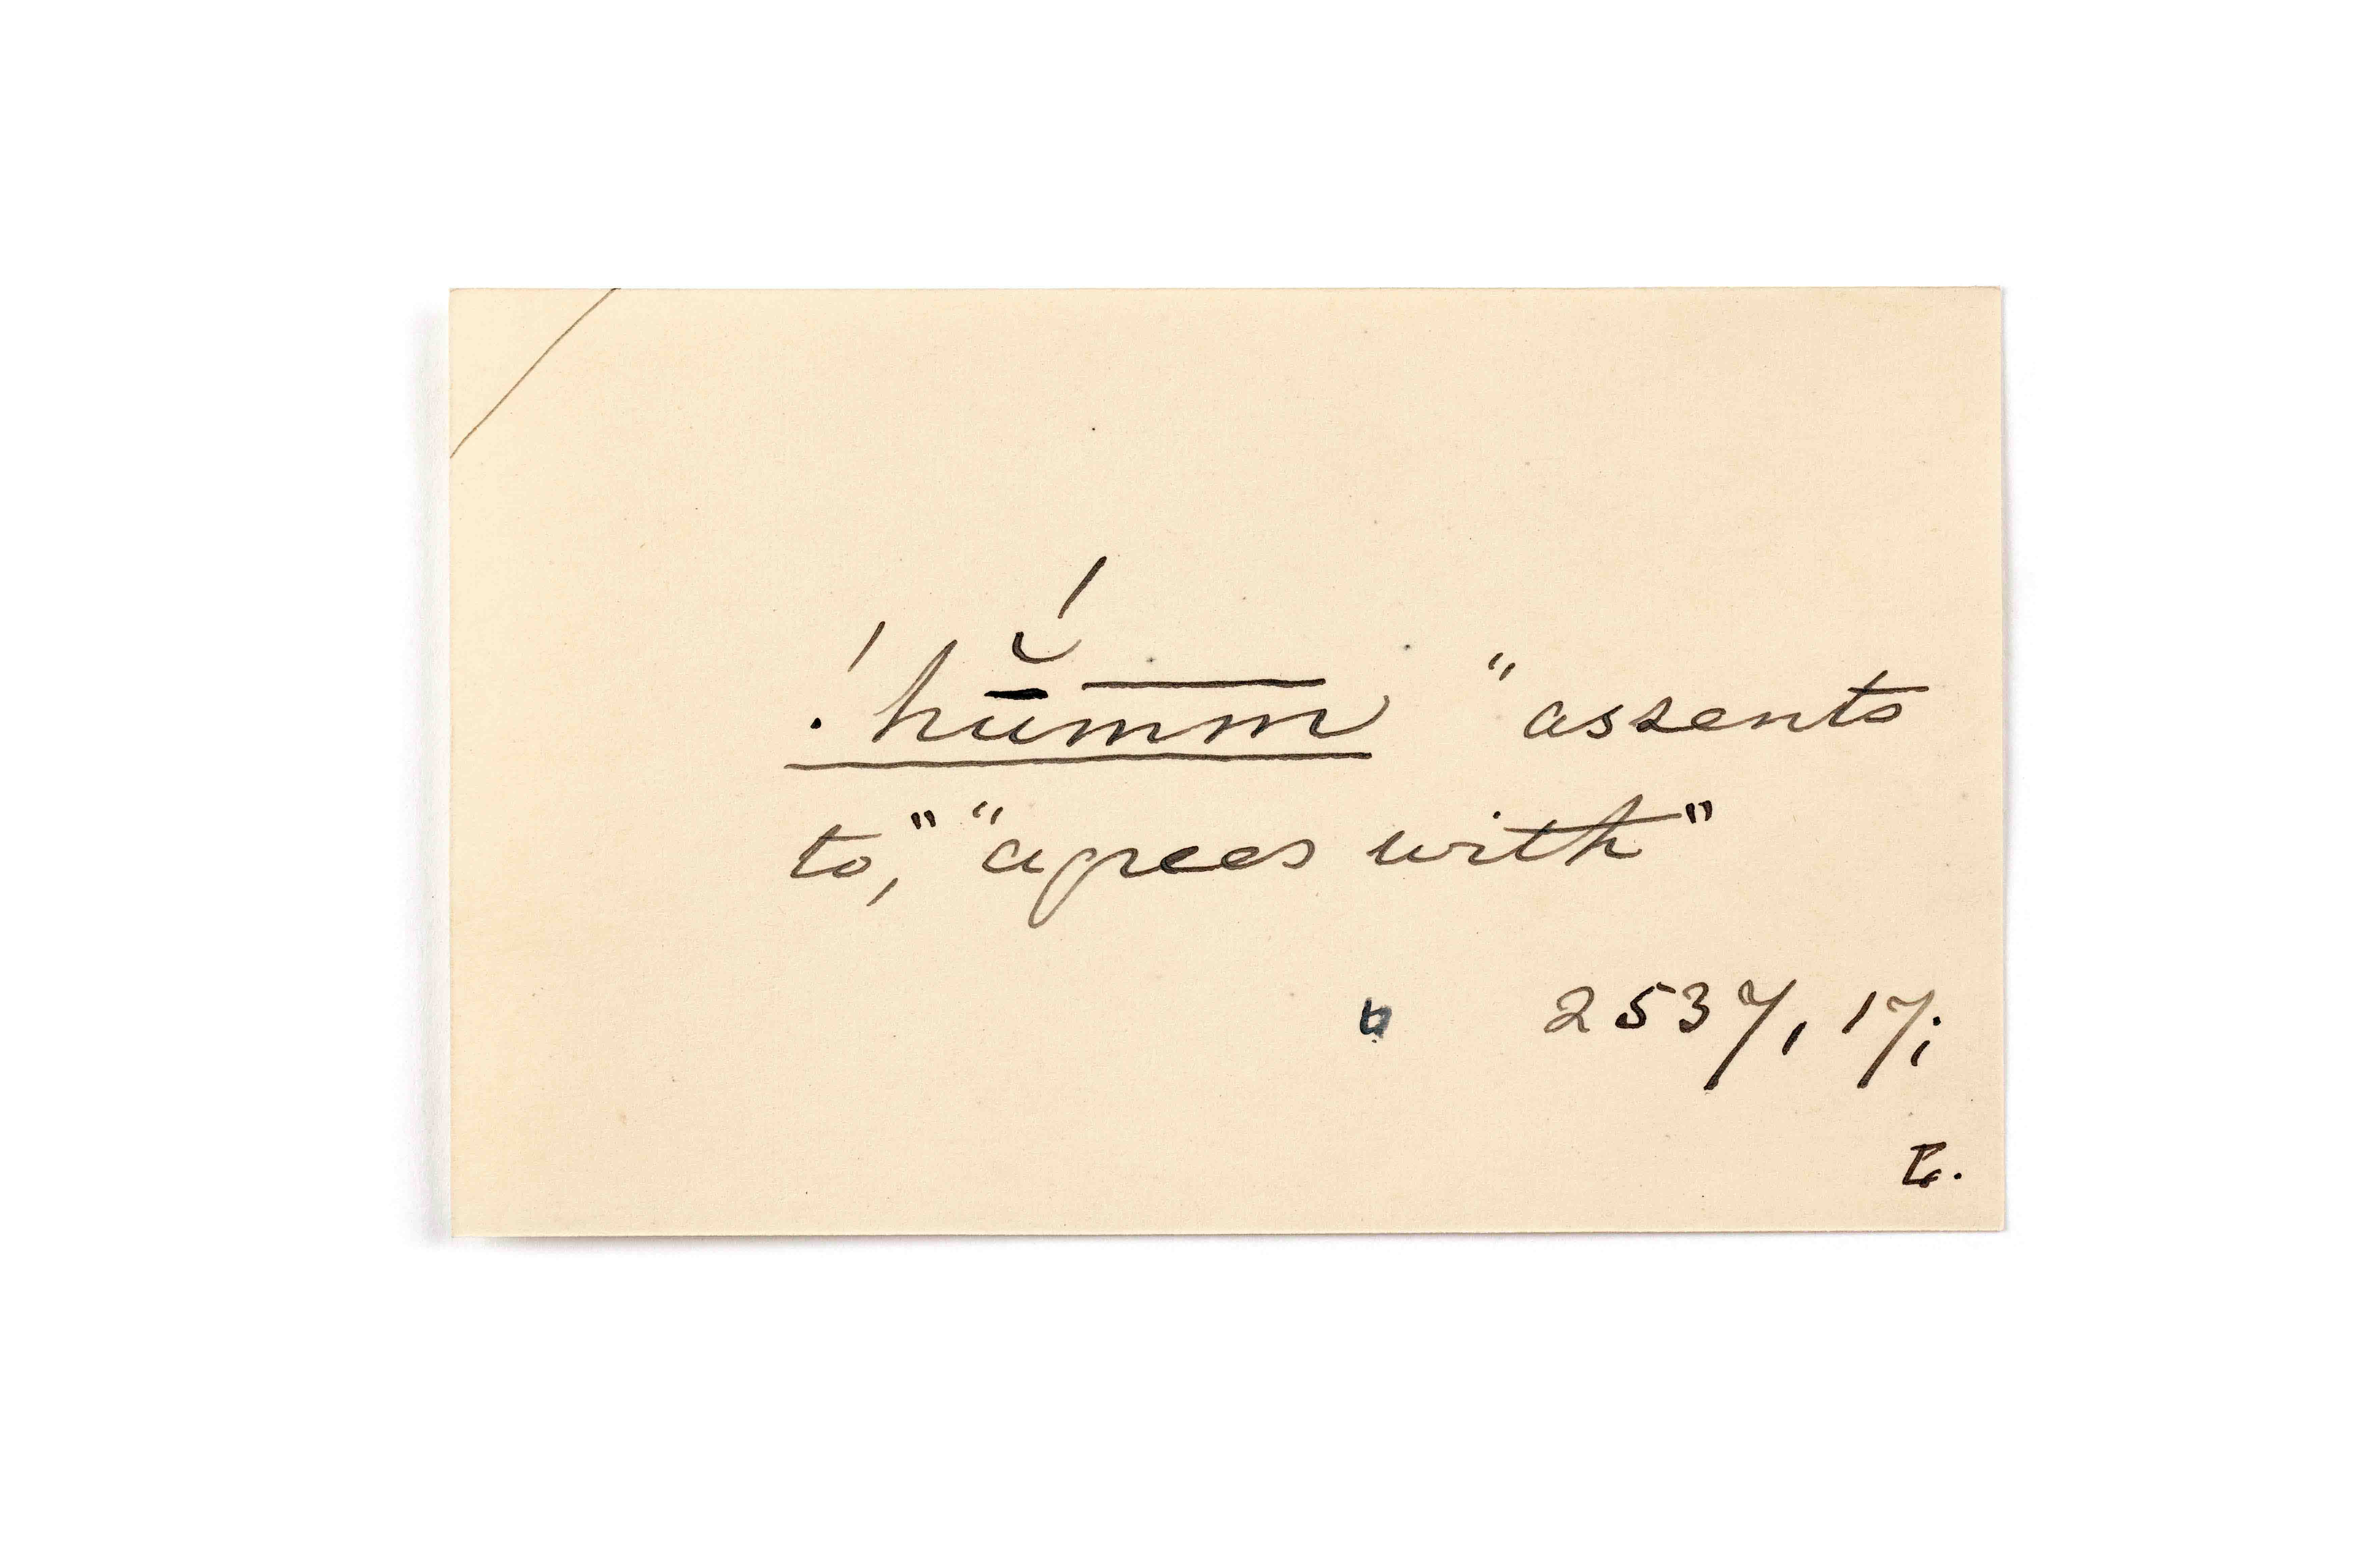 !hŭ̄́m̅m̅ "assents
to," "agrees with"
2537, 17;